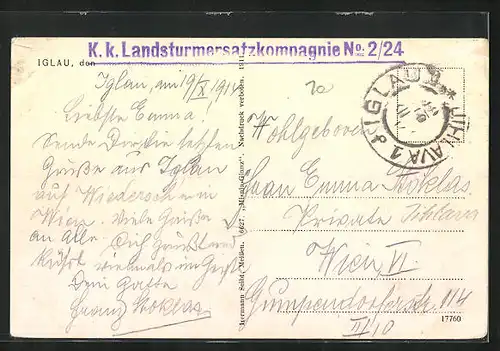 K. k. Landsturmersatzkompagnie No. 2/24
IGLAU, den
Iglau, am 19/X 1914
Liebste Emma!
Sende Dir die letzten
Grüße aus Iglau
auf Wiedersehen in
Wien. Viele Grüße
an Alle. Dich grüßt und
küßt vielmals im Geiste
Dein Gatte
Franz Stoklas
Hermann Seibt, Meißen. 16627. „Miegla-Glanz“. Nachdruck verboten. 1911
20
IGLAU 1 JIHLAVA 1
Wohlgeboren
Frau Emma Stoklas
Private
Wien, VI.
Gumpendorferstr. 114
III/10
17760